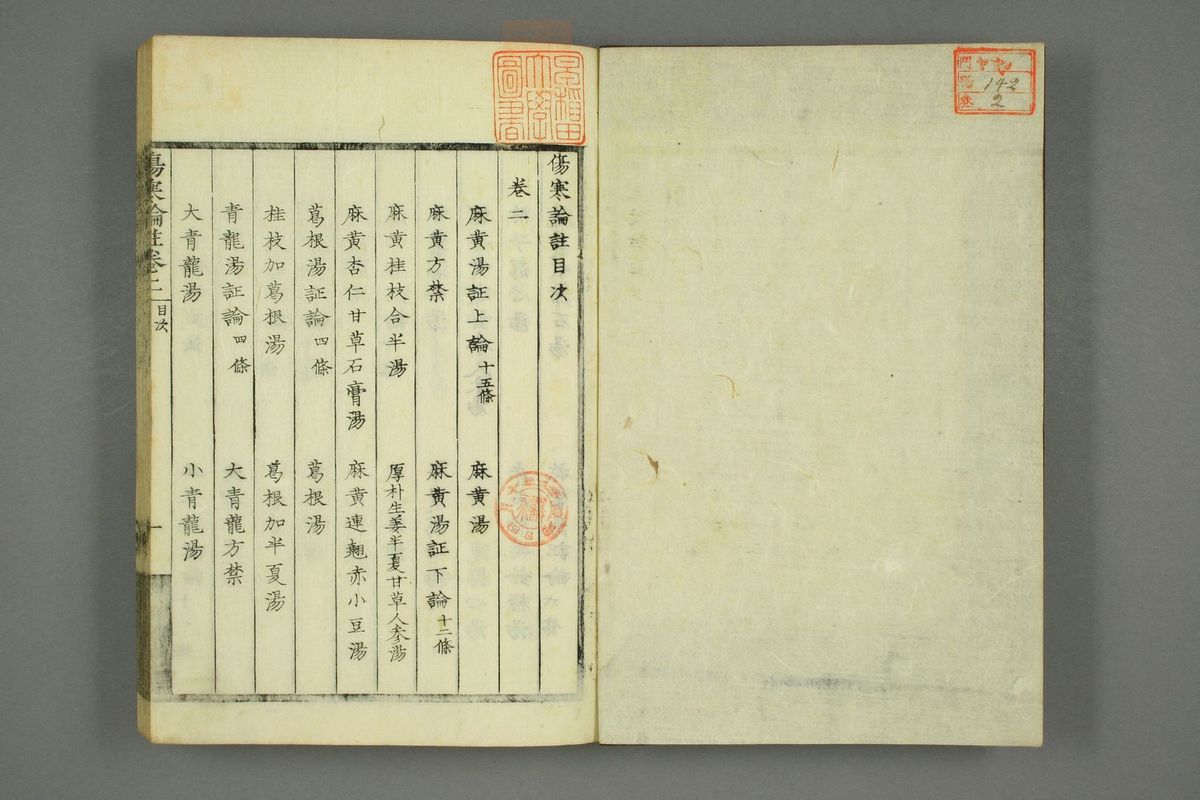 門
號 142
卷 2
早稲田
大學
圖書
傷寒論註目次
卷二
麻黄湯証上論十五條 麻黄湯
麻黄方禁 麻黄湯証下論十二條
麻黄桂枝合半湯 厚朴生姜半夏甘草人参湯
麻黄杏仁甘草石膏湯 麻黄連翹赤小豆湯
葛根湯証論四條 葛根湯
桂枝加葛根湯 葛根加半夏湯
青龍湯証論四條 大青龍方禁
大青龍湯 小青龍湯
傷寒論註卷二 目次 一